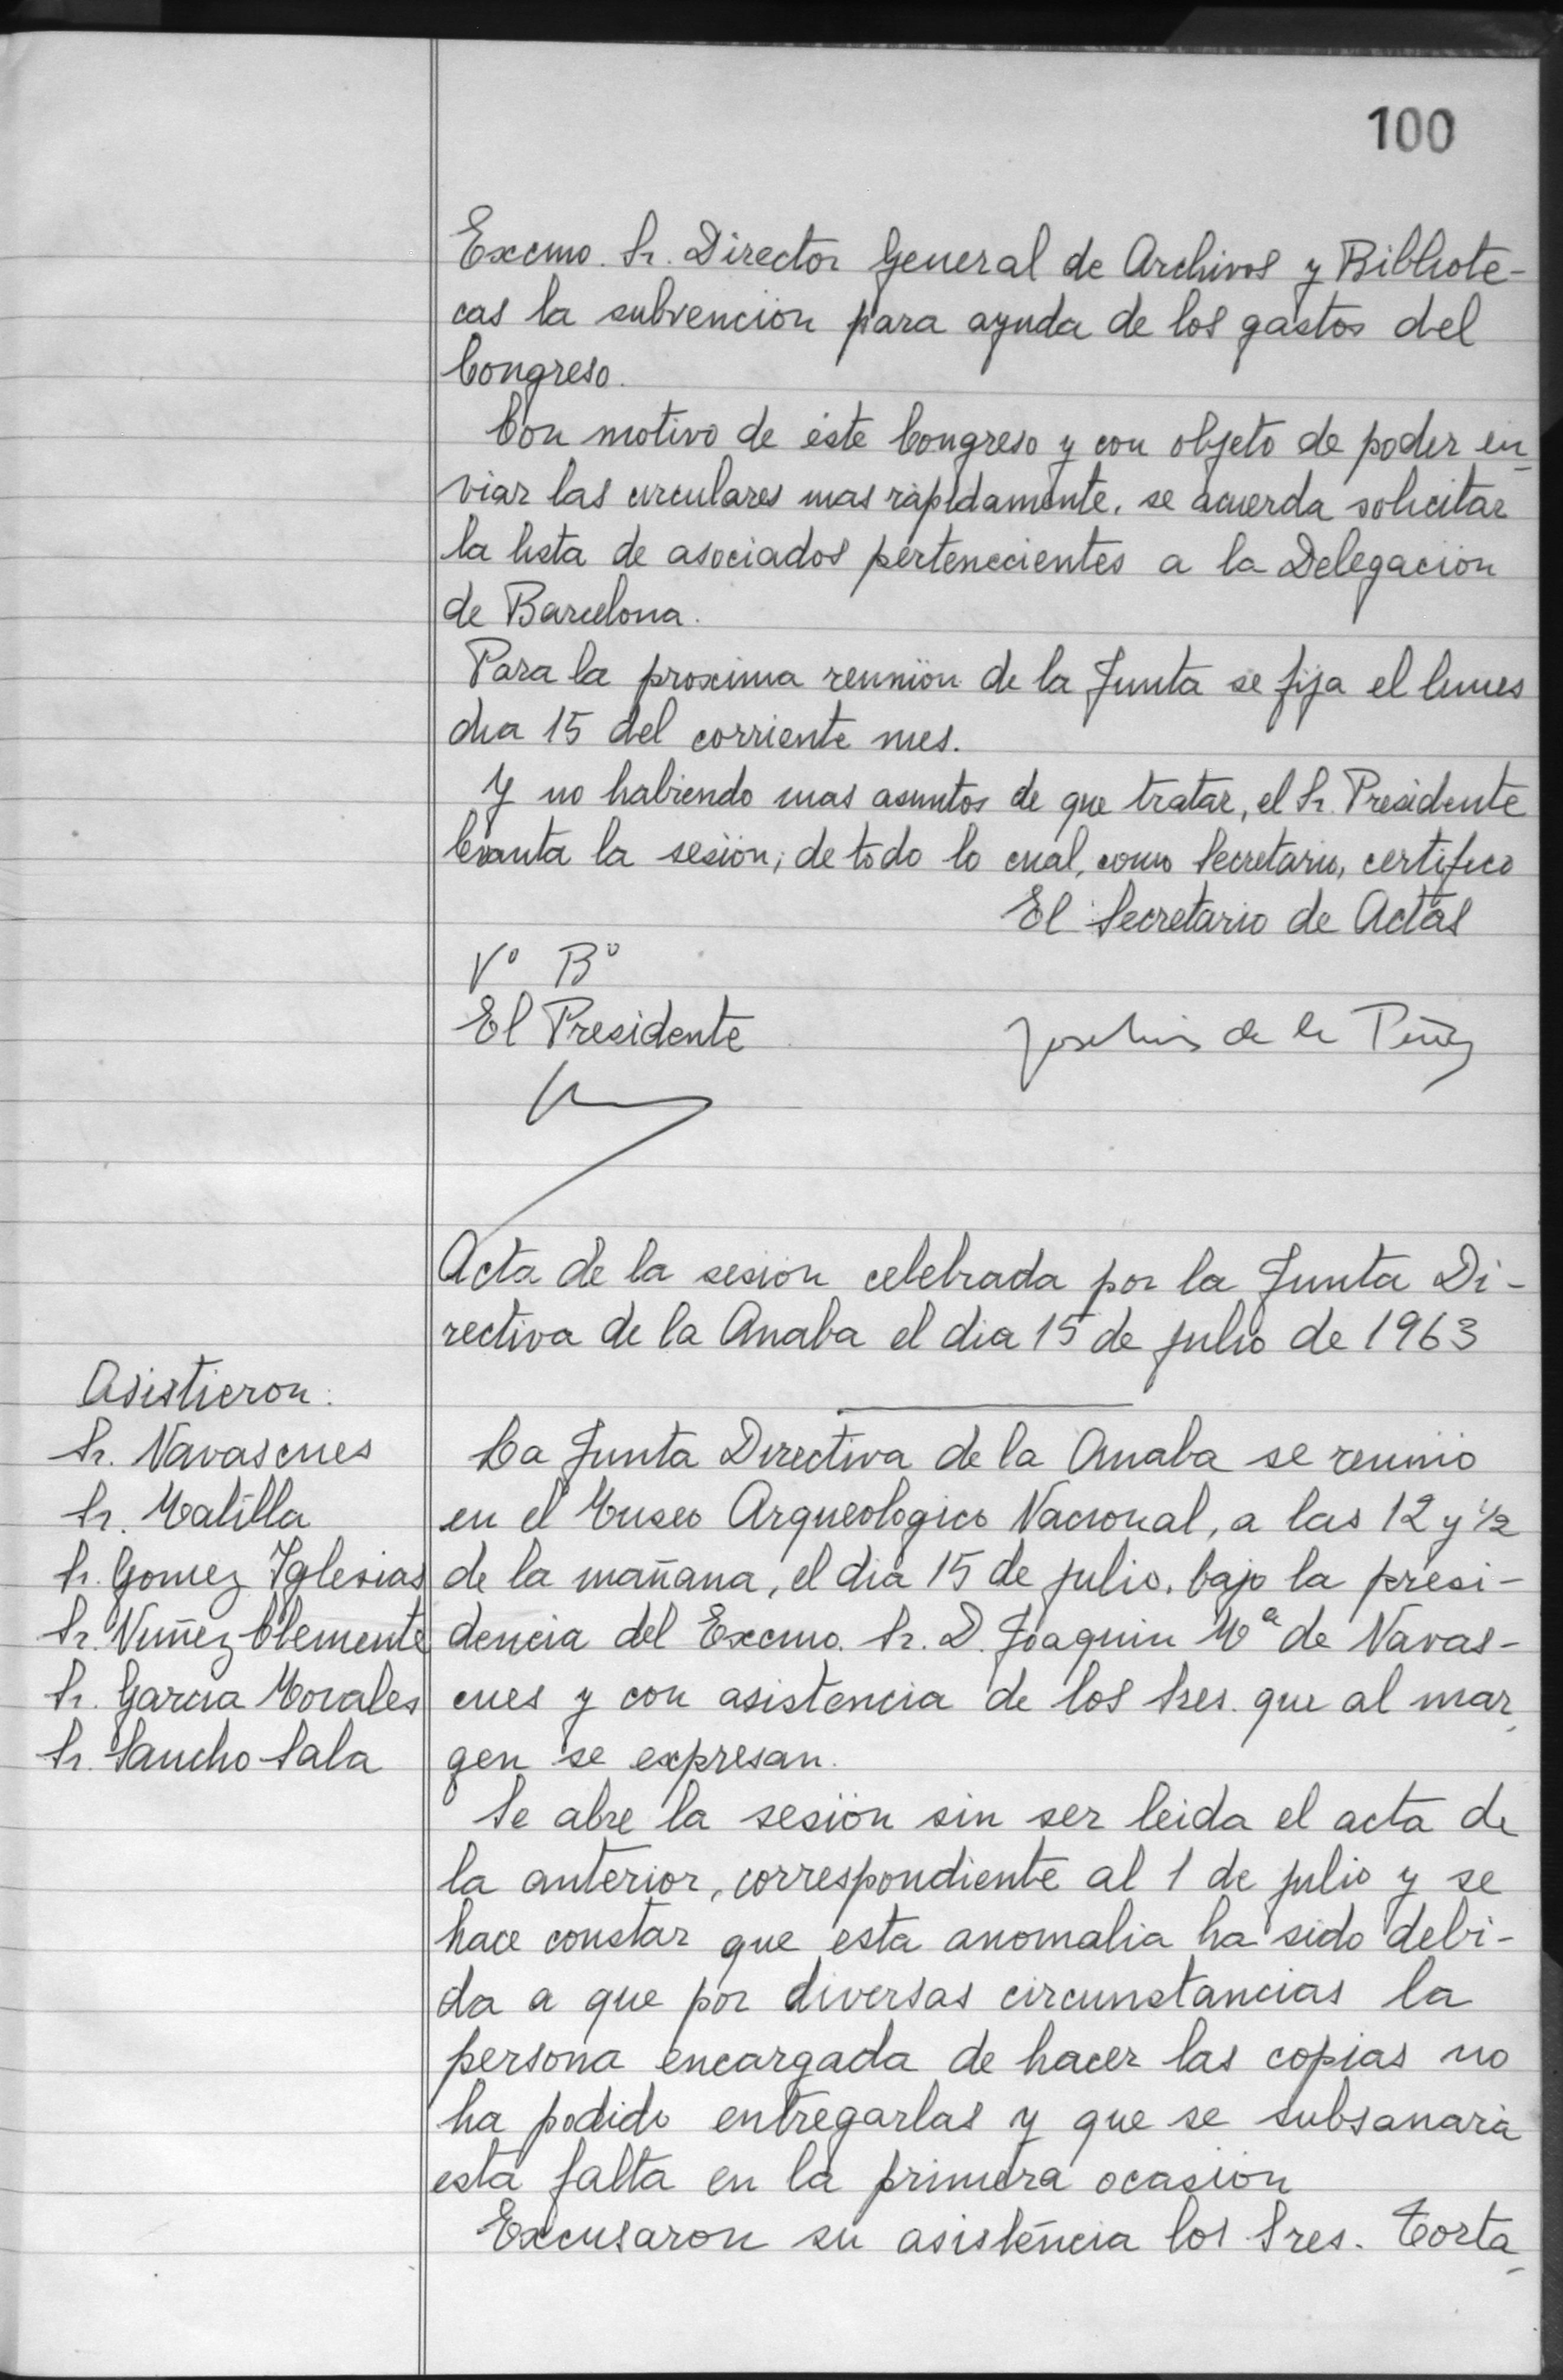 100
Excmo. Sr. Director General de Archivos y Bibliote-
cas la subvención para ayuda de los gastos del
Congreso.
Con motivo de éste Congreso y con objeto de poder en-
viar las circulares mas rápidamente, se acuerda solicitar
la lista de asociados pertenecientes a la Delegación
de Barcelona.
Para la proxima reunión de la Junta se fija el lunes
dia 15 del corriente mes.
Y no habiendo mas asuntos de que tratar, el Sr. Presidente
levanta la sesión; de todo lo cual, como Secretario, certifico
El Secretario de Actas
Vº Bº
El Presidente
Jose Luis de la Peña
Acta de la sesión celebrada por la Junta Di-
rectiva de la Anaba el dia 15 de julio de 1963
Asistieron:
Sr. Navascues
Sr. Matilla
Sr. Gomez Iglesias
Sr. Nuñez Clemente
Sr. Garcia Morales
Sr. Sancho Sala
La Junta Directiva de la Anaba se reunió
en el Museo Arqueologico Nacional, a las 12 y ½
de la mañana, el día 15 de julio, bajo la presi-
dencia del Excmo. Sr. D. Joaquin Mª de Navas-
cues y con asistencia de los Sres. que al mar-
gen se expresan.
Se abre la sesión sin ser leida el acta de
la anterior, correspondiente al 1 de julio y se
hace constar que esta anomalia ha sido debi-
da a que por diversas circunstancias la
persona encargada de hacer las copias no
ha podido entregarlas y que se subsanará
esta falta en la primera ocasión
Excusaron su asistencia los Sres. Torta-